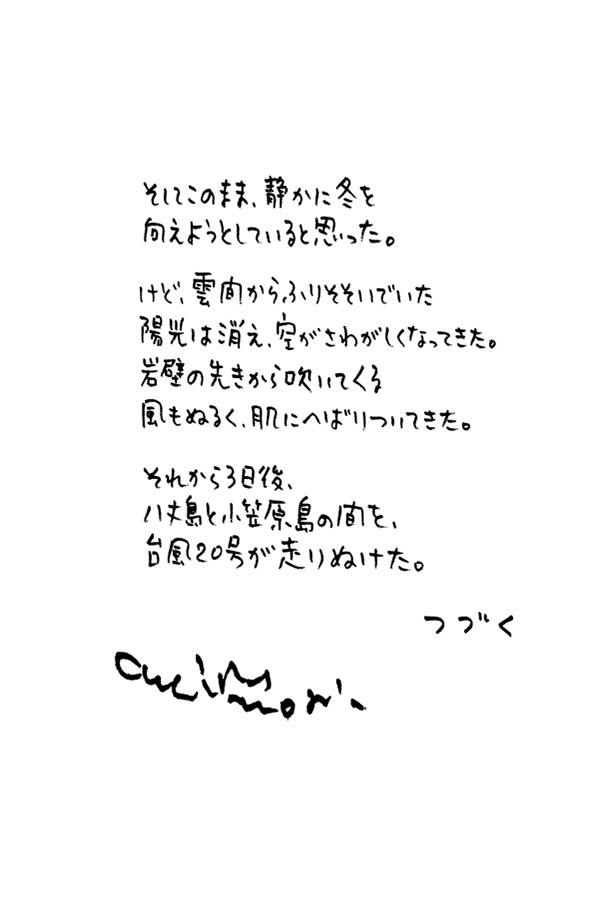 そしてこのまま、静かに冬を
向えようとしていると思った。
けど、雲間からふりそそいでいた
陽光は消え、空がさわがしくなってきた。
岩壁の先きから吹いてくる
風もぬるく、肌にへばりついてきた。
それから3日後、
八丈島と小笠原島の間を、
台風20号が走りぬけた。
つづく